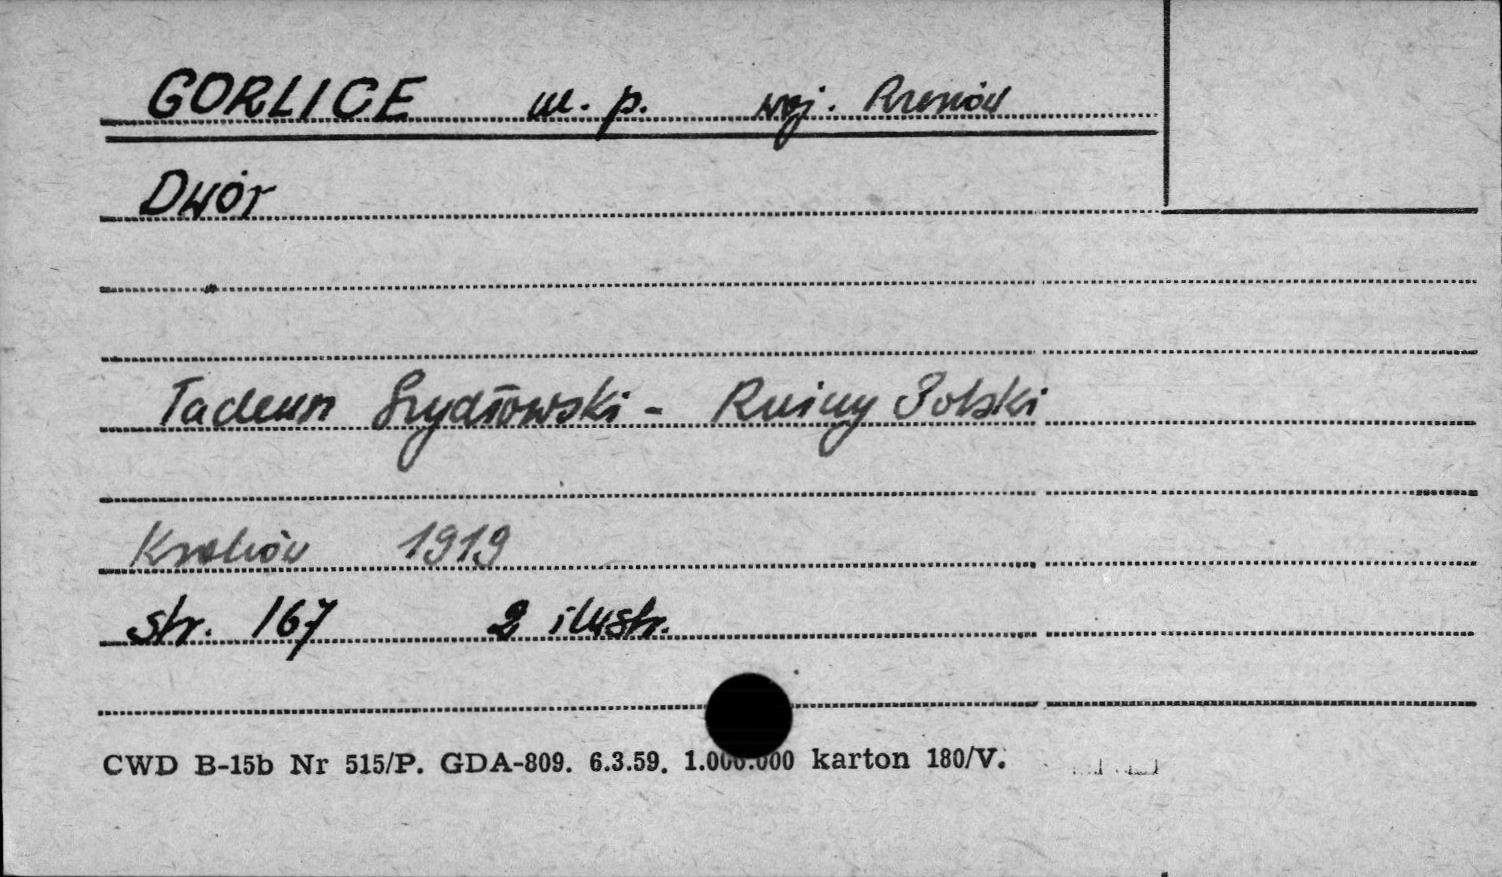 GORLICE m. p. woj. Rzeszów
Dwór
Tadeusz Szydłowski - Ruiny Polski
Kraków 1919
str. 167 2 ilustr.
CWD B-15b Nr 515/P. GDA-809. 6.3.59. 1.000.000 karton 180/V.